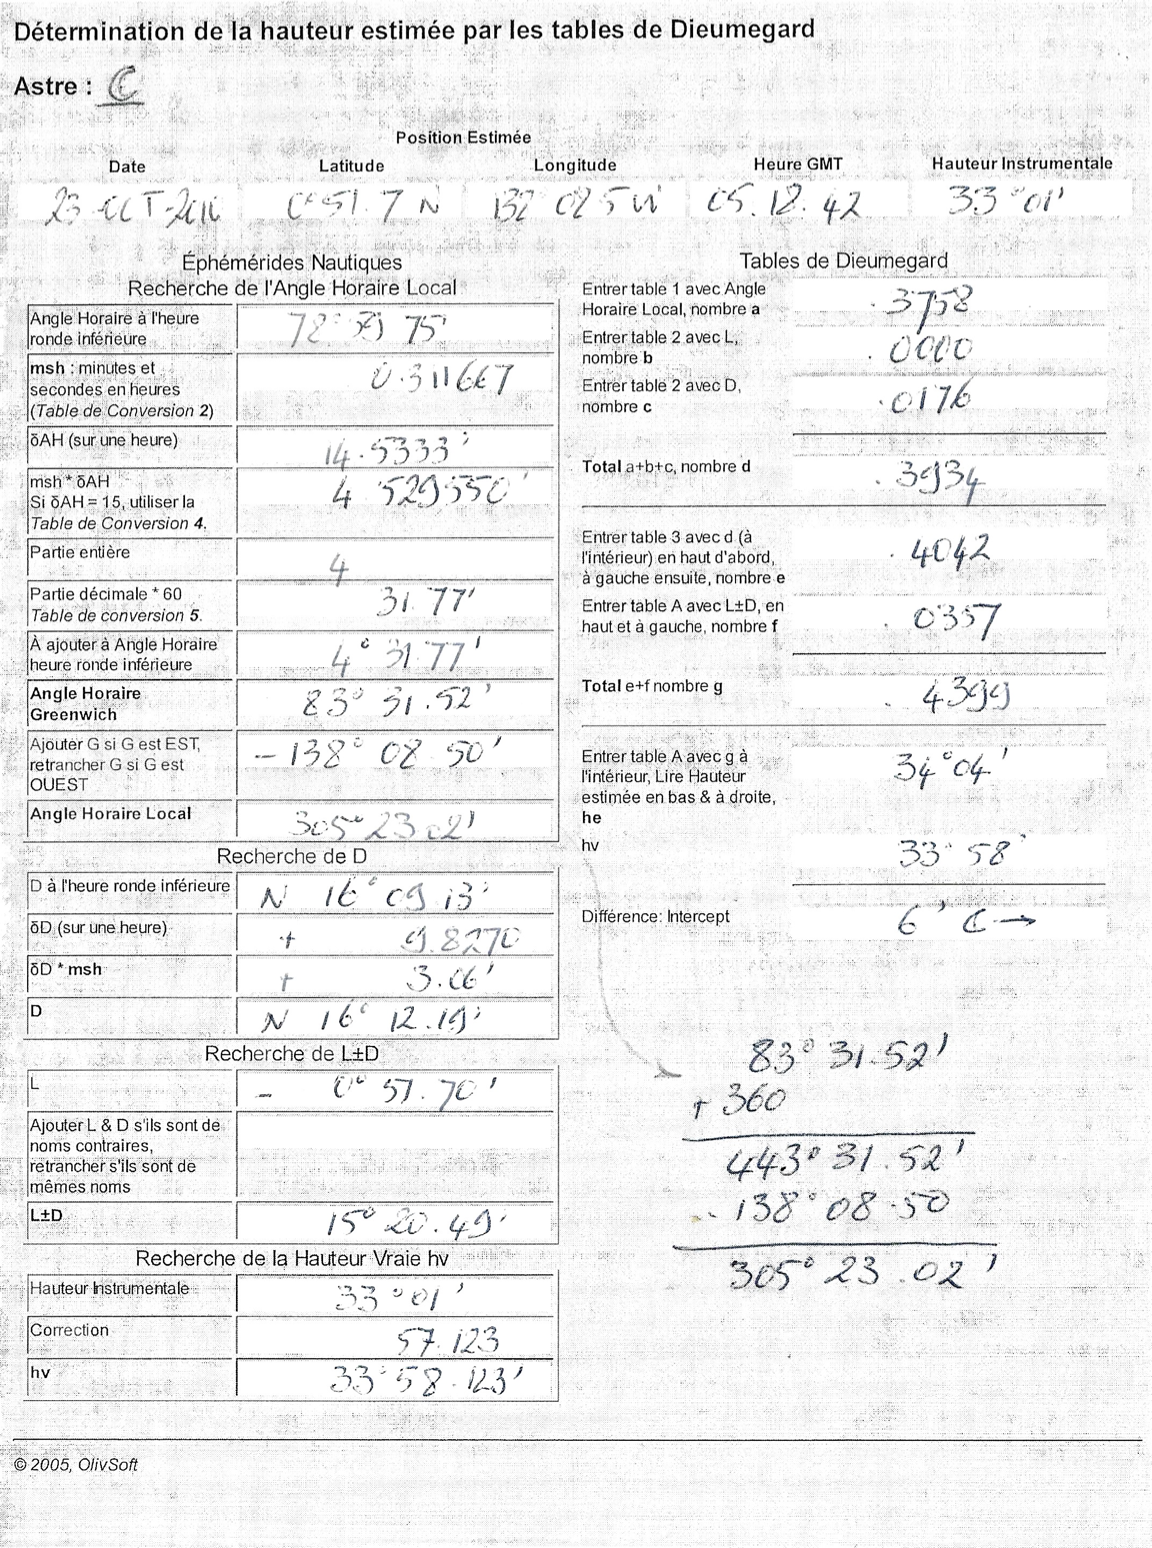 Détermination de la hauteur estimée par les tables de Dieumegard
Astre : ☾
Position Estimée
Date Latitude Longitude Heure GMT Hauteur Instrumentale
23-OCT-2010 0°51.7 N 138° 08.5 W 05.18.42 33°01'
Éphémérides Nautiques
Recherche de l'Angle Horaire Local
Angle Horaire à l'heure
ronde inférieure 78° 59.75'
msh : minutes et
secondes en heures
(Table de Conversion 2) 0.311667
δAH (sur une heure) 14.5333'
msh * δAH
Si δAH = 15, utiliser la
Table de Conversion 4. 4.529550'
Partie entière 4
Partie décimale * 60
Table de conversion 5. 31.77'
À ajouter à Angle Horaire
heure ronde inférieure 4° 31.77'
Angle Horaire
Greenwich 83° 31.52'
Ajouter G si G est EST,
retrancher G si G est
OUEST - 138° 08.50'
Angle Horaire Local 305° 23.02'
Recherche de D
D à l'heure ronde inférieure N 16° 09.13'
δD (sur une heure) + 9.8270
δD * msh + 3.06'
D N 16° 12.19'
Recherche de L±D
L - 0° 51.70'
Ajouter L & D s'ils sont de
noms contraires,
retrancher s'ils sont de
mêmes noms
L±D 15° 20.49'
Recherche de la Hauteur Vraie hv
Hauteur Instrumentale 33°01'
Correction 57.123
hv 33° 58.123'
Tables de Dieumegard
Entrer table 1 avec Angle
Horaire Local, nombre a .3758
Entrer table 2 avec L,
nombre b .0000
Entrer table 2 avec D,
nombre c .0176
Total a+b+c, nombre d .3934
Entrer table 3 avec d (à
l'intérieur) en haut d'abord,
à gauche ensuite, nombre e .4042
Entrer table A avec L±D, en
haut et à gauche, nombre f .0357
Total e+f nombre g .4399
Entrer table A avec g à
l'intérieur, Lire Hauteur
estimée en bas & à droite,
he 34°04'
hv 33° 58'
Différence: Intercept 6' ☾→
83° 31.52'
+ 360
443° 31.52'
- 138° 08.50
305° 23.02'
© 2005, OlivSoft